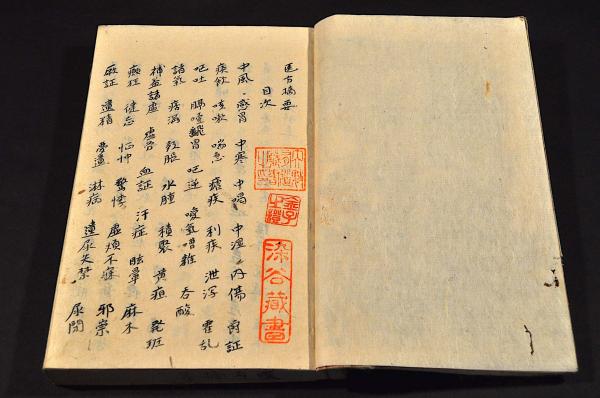 医方摘要
目次
中風 感冒 中寒 中暍 中湿 内傷 鬱証
痰飲 咳嗽 喘急 瘧疾 利疾 泄瀉 霍乱
嘔吐 膈噎翻胃 呃逆 噯氣嘈雑 呑酸
諸氣 痞満 皷脹 水腫 積聚 黄疸 発斑
補益諸虚 虚労 血証 汗症 眩暈 麻木
癲狂 健忘 怔忡 驚悸 虚煩不寐 邪祟
厥証 遺精 夢遺 淋病 遺尿失禁 尿閉
深谷藏書